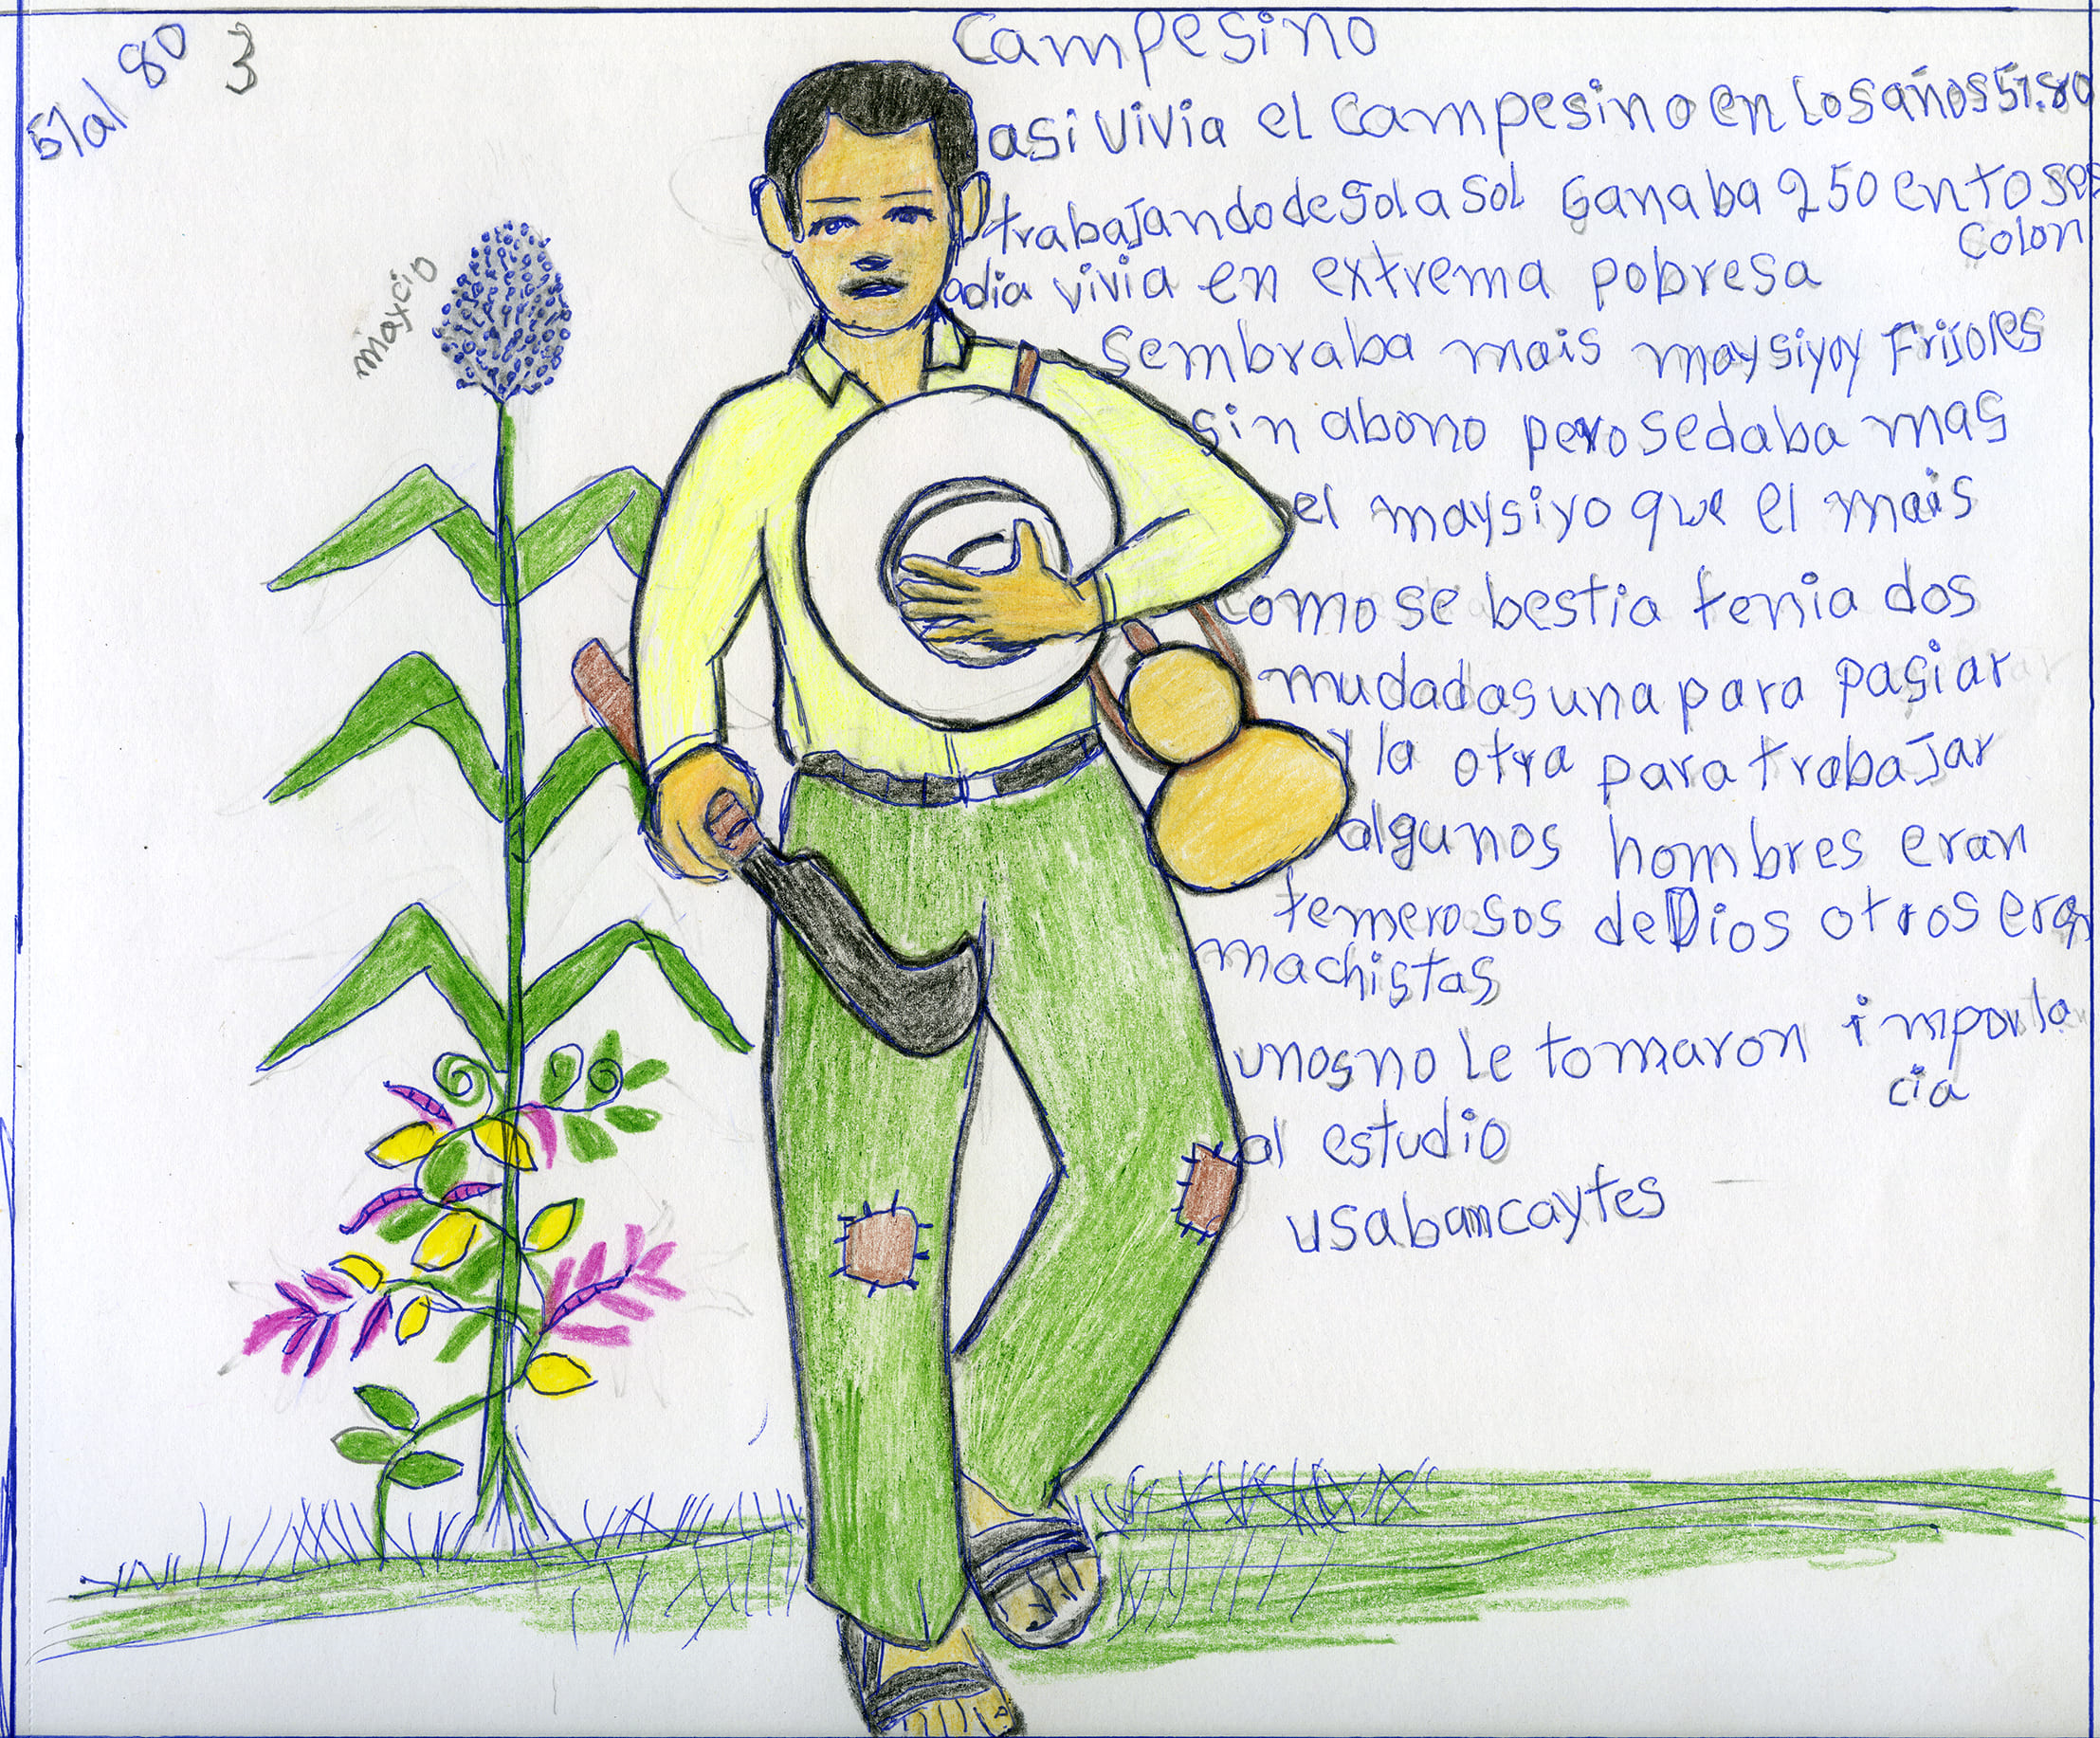 51 al 80
3
Campesino
asi vivia el campesino en los años 51.80
trabajando de sol a sol ganaba 250 entoses
colon
adia vivia en extrema pobresa
maycio
sembraba mais maysiyoy frijoles
sin abono pero se daba mas
el maysiyo que el mais
como se bestia tenia dos
mudadas una para pasiar
y la otra para trabajar
algunos hombres eran
temerosos de Dios otros eran
machistas
unos no le tomaron importa
cia
al estudio
usaban caytes